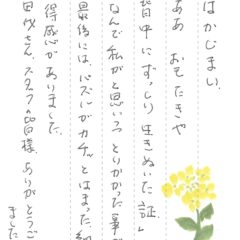 はかじまい
ああ おもたきや
背中にずっしり 生きぬいた 証」
なんで 私がと思いつつ とりかかった 事が
最後には、パズルがカチッとはまった
得感がありました。
スタッフの皆様、ありがとうご
ました